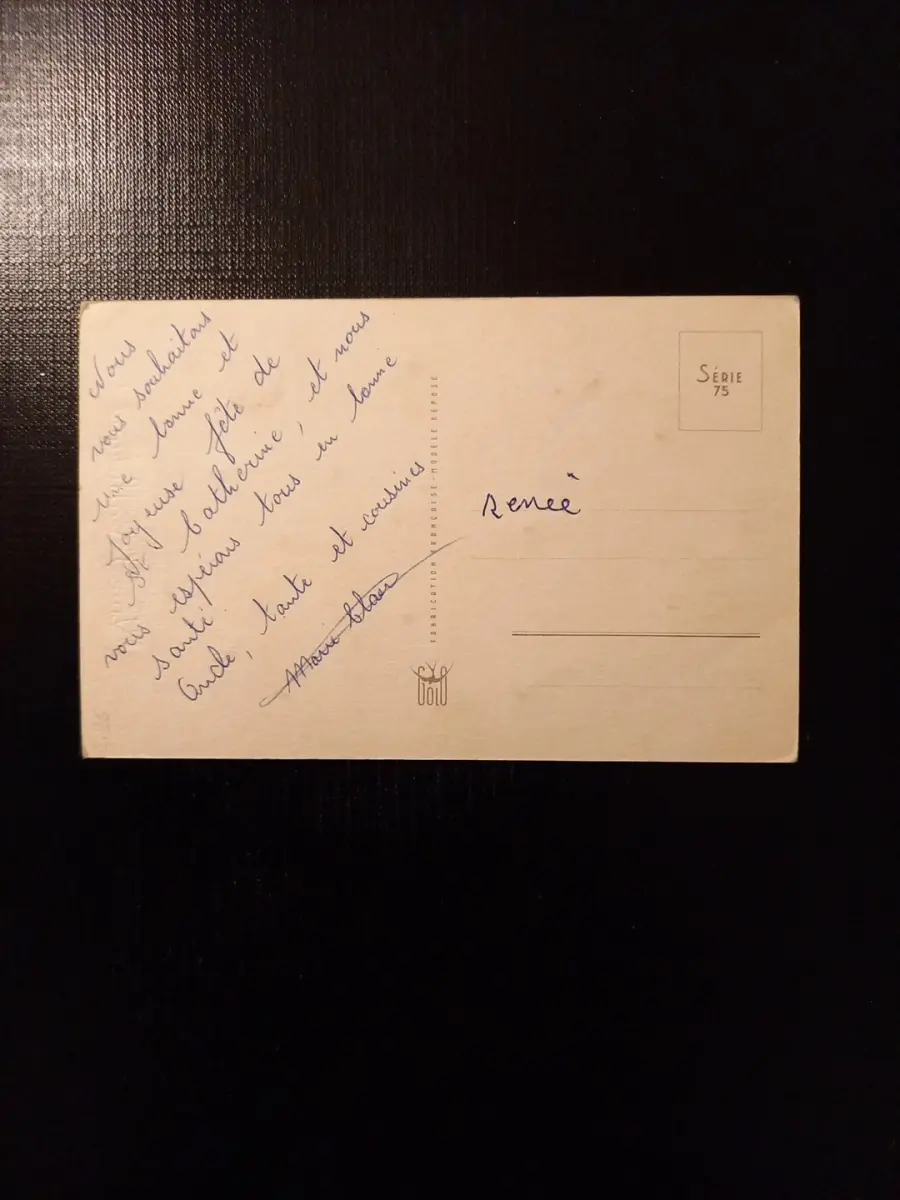 Nous
vous souhaitons
une bonne et
Joyeuse fête de
St Catherine, et nous
vous espérons tous en bonne
santé.
Oncle, tante et cousines
Marie Claire
FABRICATION FRANÇAISE - MODÈLE DÉPOSÉ
GOLO
SÉRIE
75
Renée